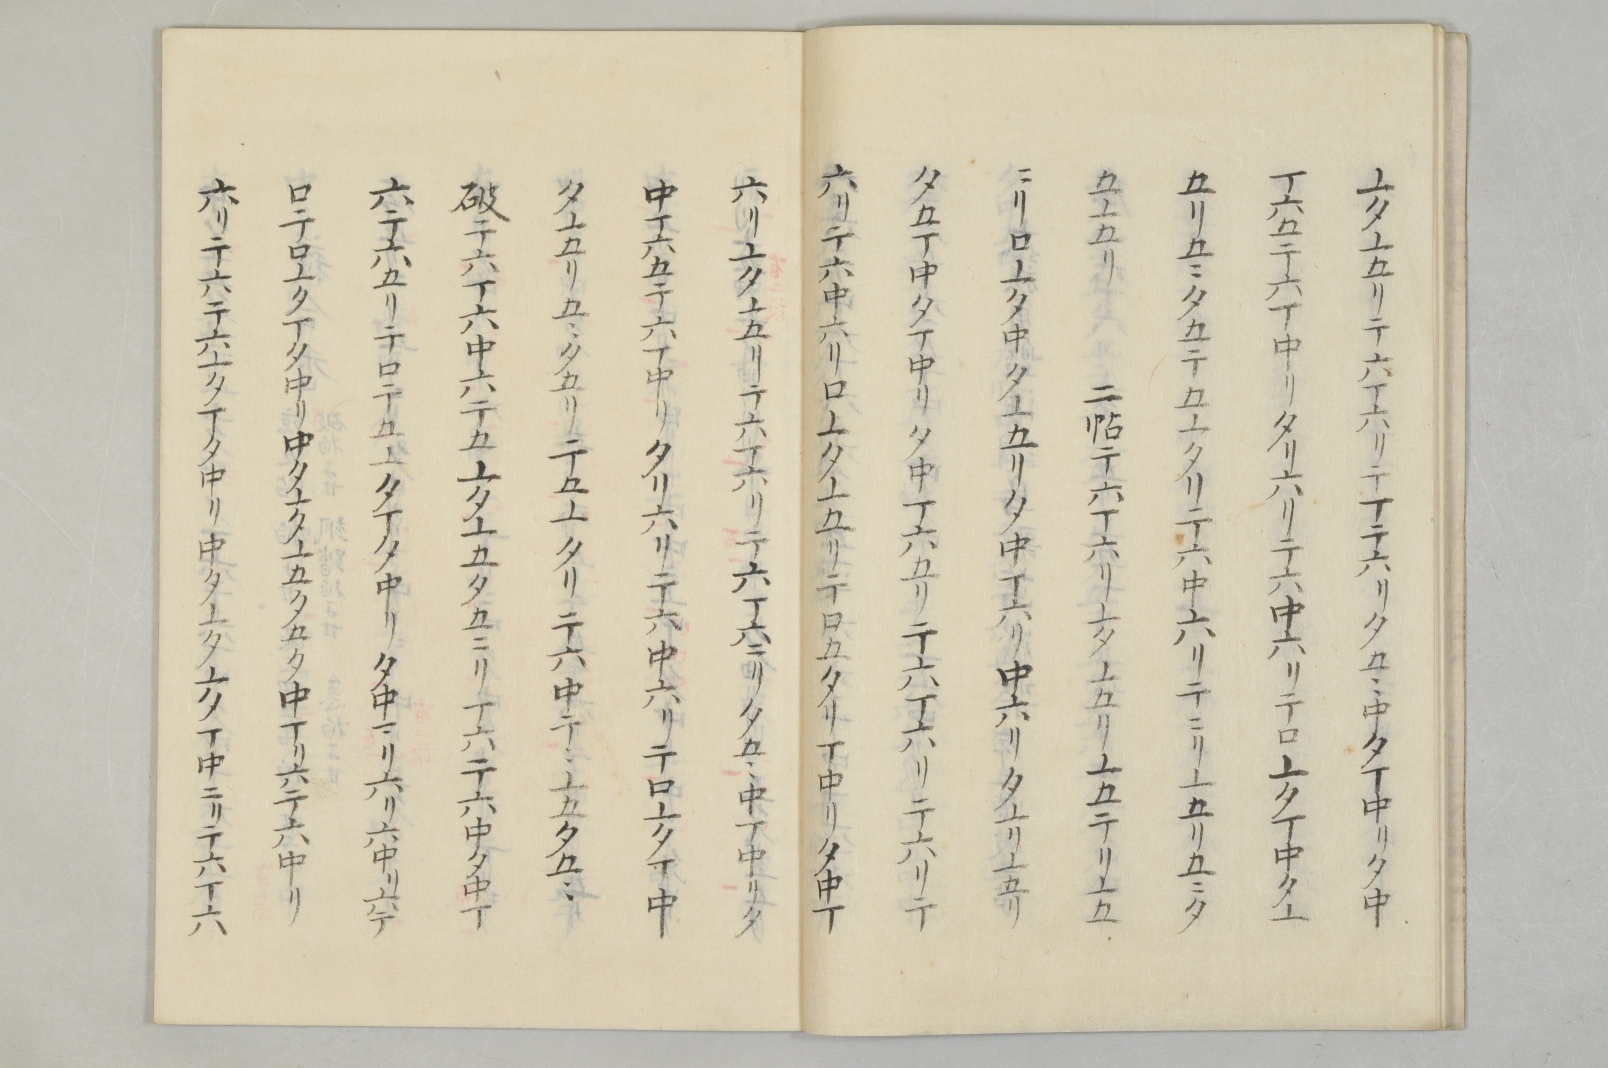 上夕上五リテ六丅六リテ丅テ六リ夕五ミ中夕丅中リ夕中
丅六五テ六丅中リ夕リ六リテ六中六リテロ上夕丅中夕上
五リ五ミ夕五テ五上夕リテ六中六リテミリ上五リ五ミ夕
五上五リ 二帖テ六丅六リ上夕上五リ上五テリ上五
ミリロ上夕中夕上五リ夕中丅六リ中六リ夕上リ上五リ
夕五丅中夕丅中リ夕中丅六五リテ六丅六リテ六リテ
六リテ六中六リロ上夕上五リテロ五夕リ丅中リ夕中丅
六リ上夕上五リテ六丅六リテ六丅六ミリ夕五ミ中丅中リ夕
中丅六五テ六丅中リ夕リ六リテ六中六リテロ上夕丅中
夕上五リ五ミ夕五リテ五上夕リテ六中テミ上五夕五ミ
破テ六丅六中六テ五上夕上五夕五ミリ丅六テ六中夕中丅
六テ六五リテロテ五上夕丅夕中リ夕中ミリ六リ六中リ六テ
ロテロ上夕丅夕中リ中夕上夕上五夕五夕中丅リ六テ六中リ
六リテ六テ六上夕丅夕中リ中夕上夕上夕丅中ミリテ六丅六